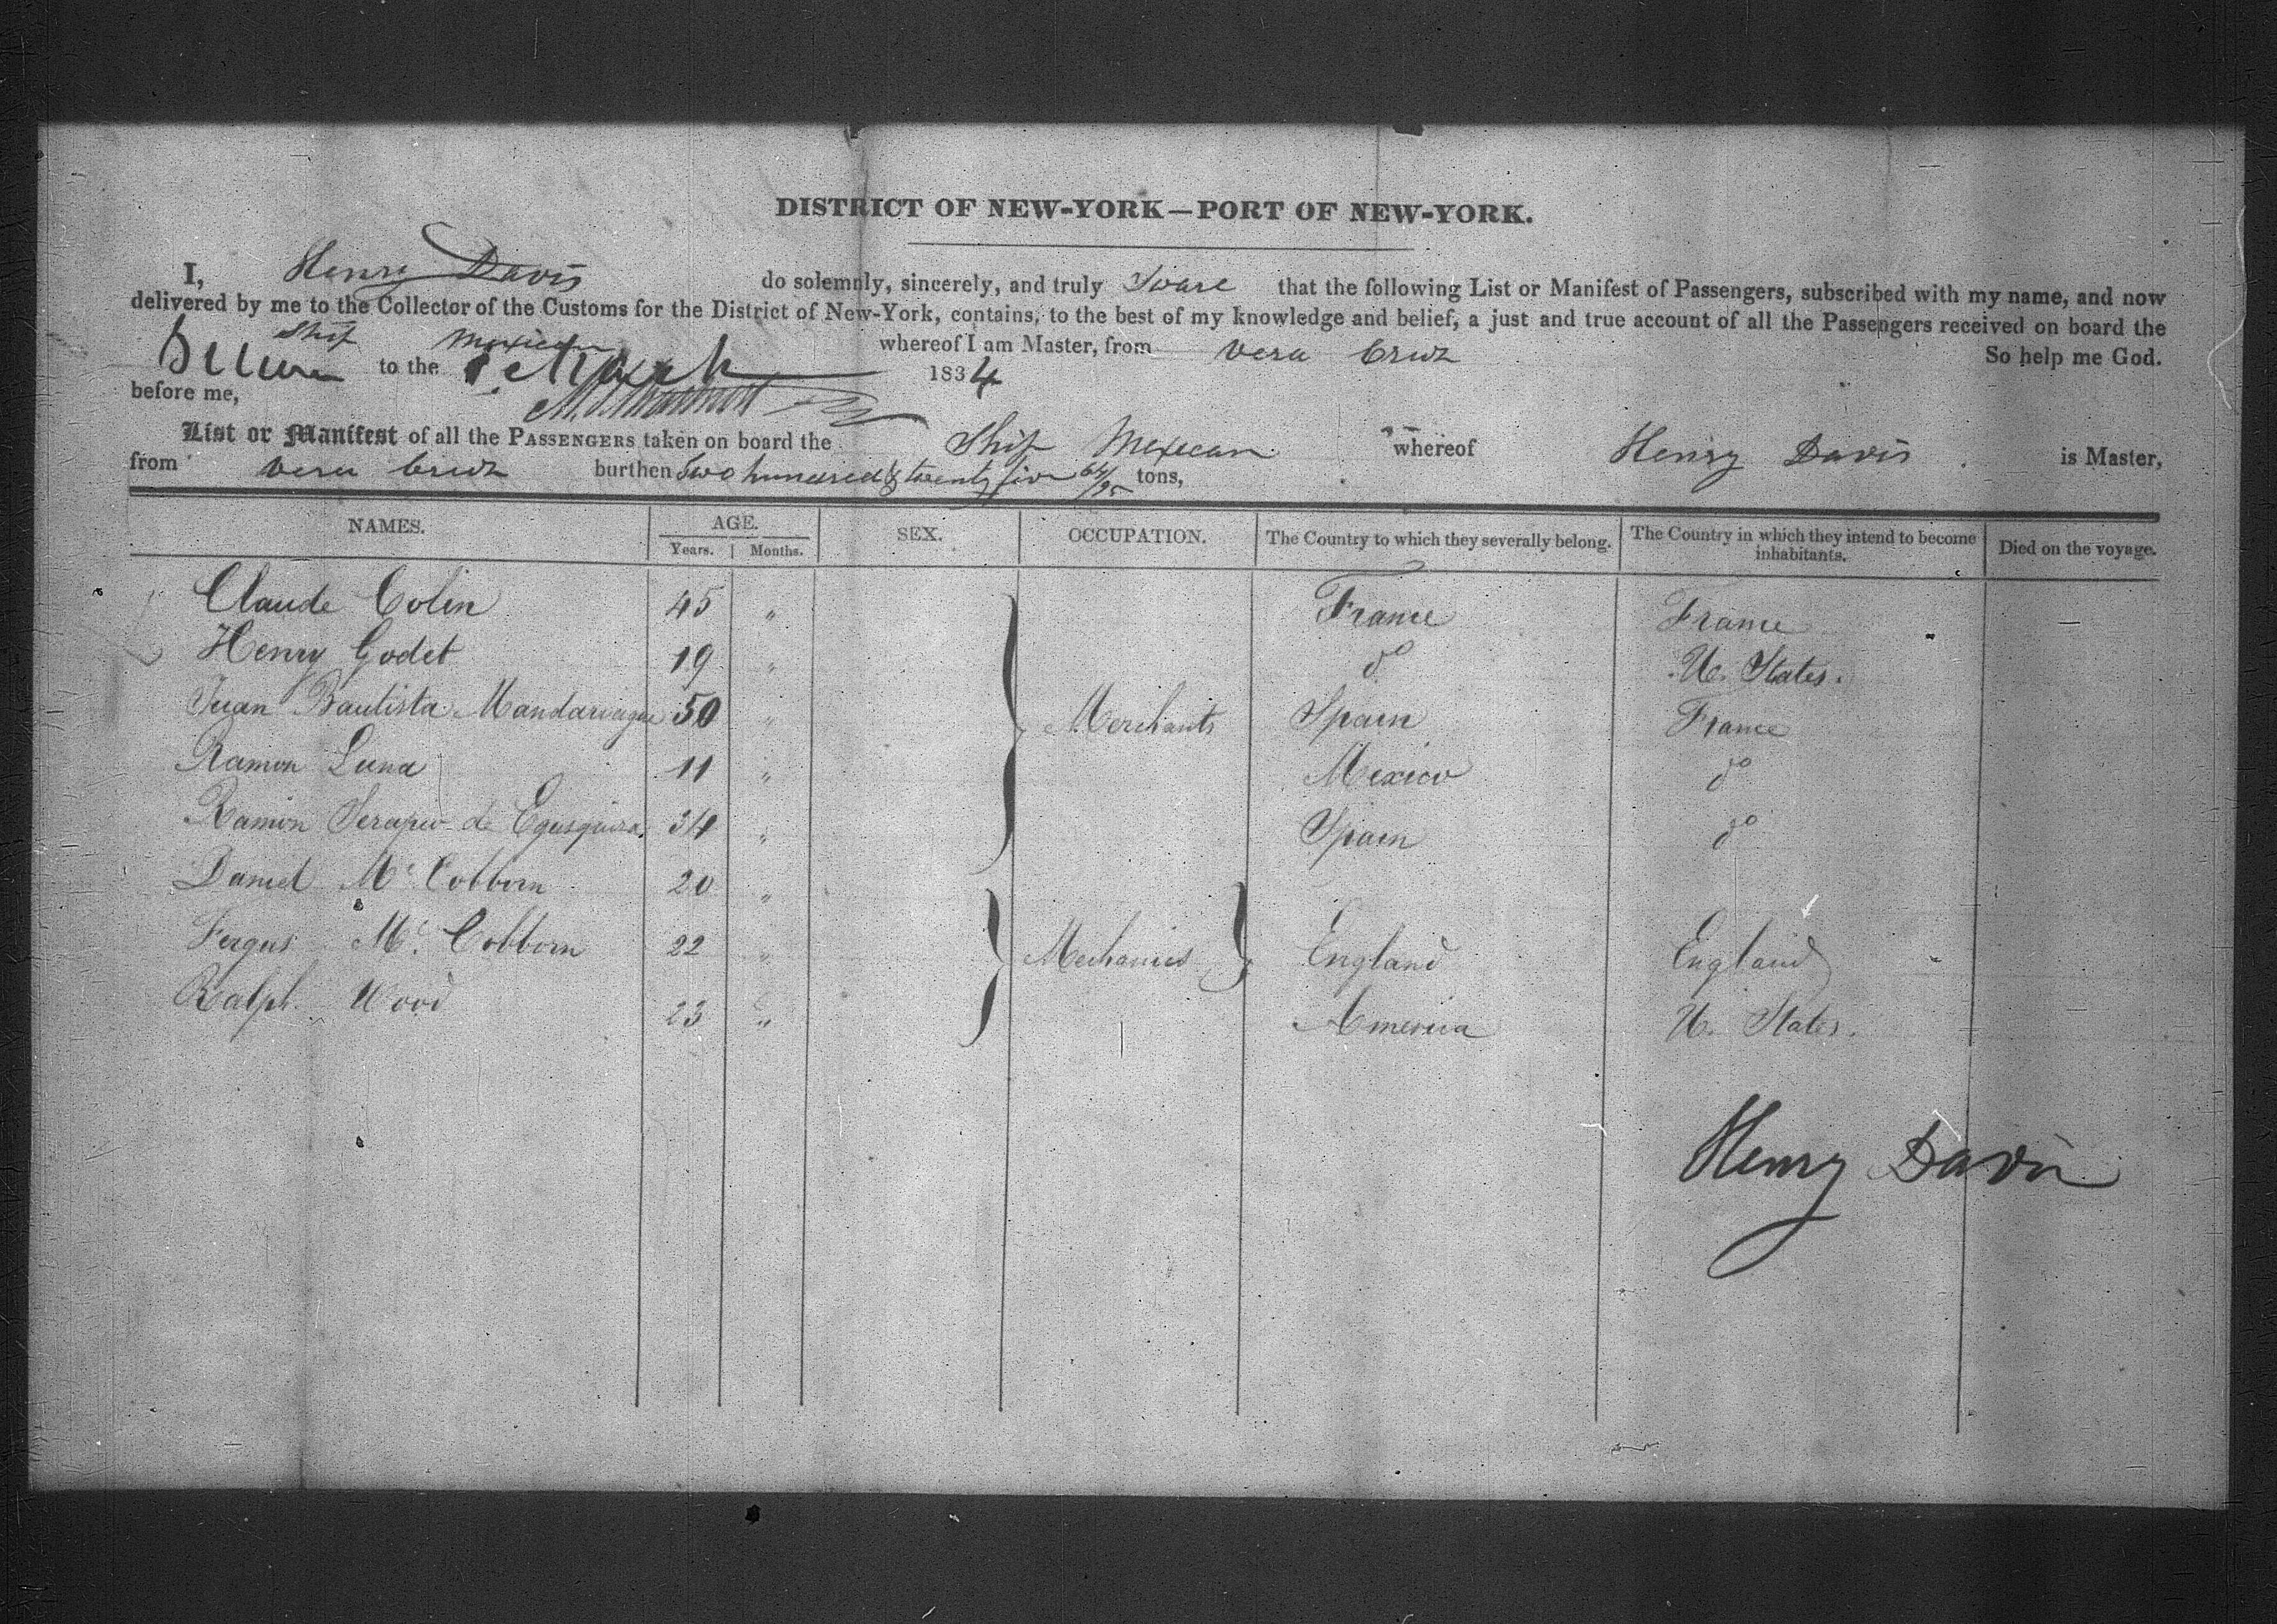 DISTRICT OF NEW-YORK—PORT OF NEW-YORK.
I, Henry Davis do solemnly, sincerely, and truly Sware that the following List or Manifest of Passengers, subscribed with my name, and now
delivered by me to the Collector of the Customs for the District of New-York, contains, to the best of my knowledge and belief, a just and true account of all the Passengers received on board the
Ship Mexican whereof I am Master, from Vera Cruz So help me God.
to the March 1834
before me,
List or Manifest of all the PASSENGERS taken on board the Ship Mexican whereof Henry Davis is Master,
from Vera Cruz burthen Two hundred & twenty five 64/95 tons,
NAMES. AGE. SEX. OCCUPATION. The Country to which they severally belong. The Country in which they intend to become inhabitants. Died on the voyage.
Years. Months.
Claude Colin 45 " France France
Henry Godet 19 " do U. States.
Juan Bautista 50 " Merchants Spain France
Ramon Luna 11 " Mexico do
Ramon Serapio de Egusquiza 34 " Spain do
Daniel Mc Cobborn 20 "
Fergus Mc Cobborn 22 " Mechanics England England
Ralph Wood 23 " America U. States.
Henry Davis